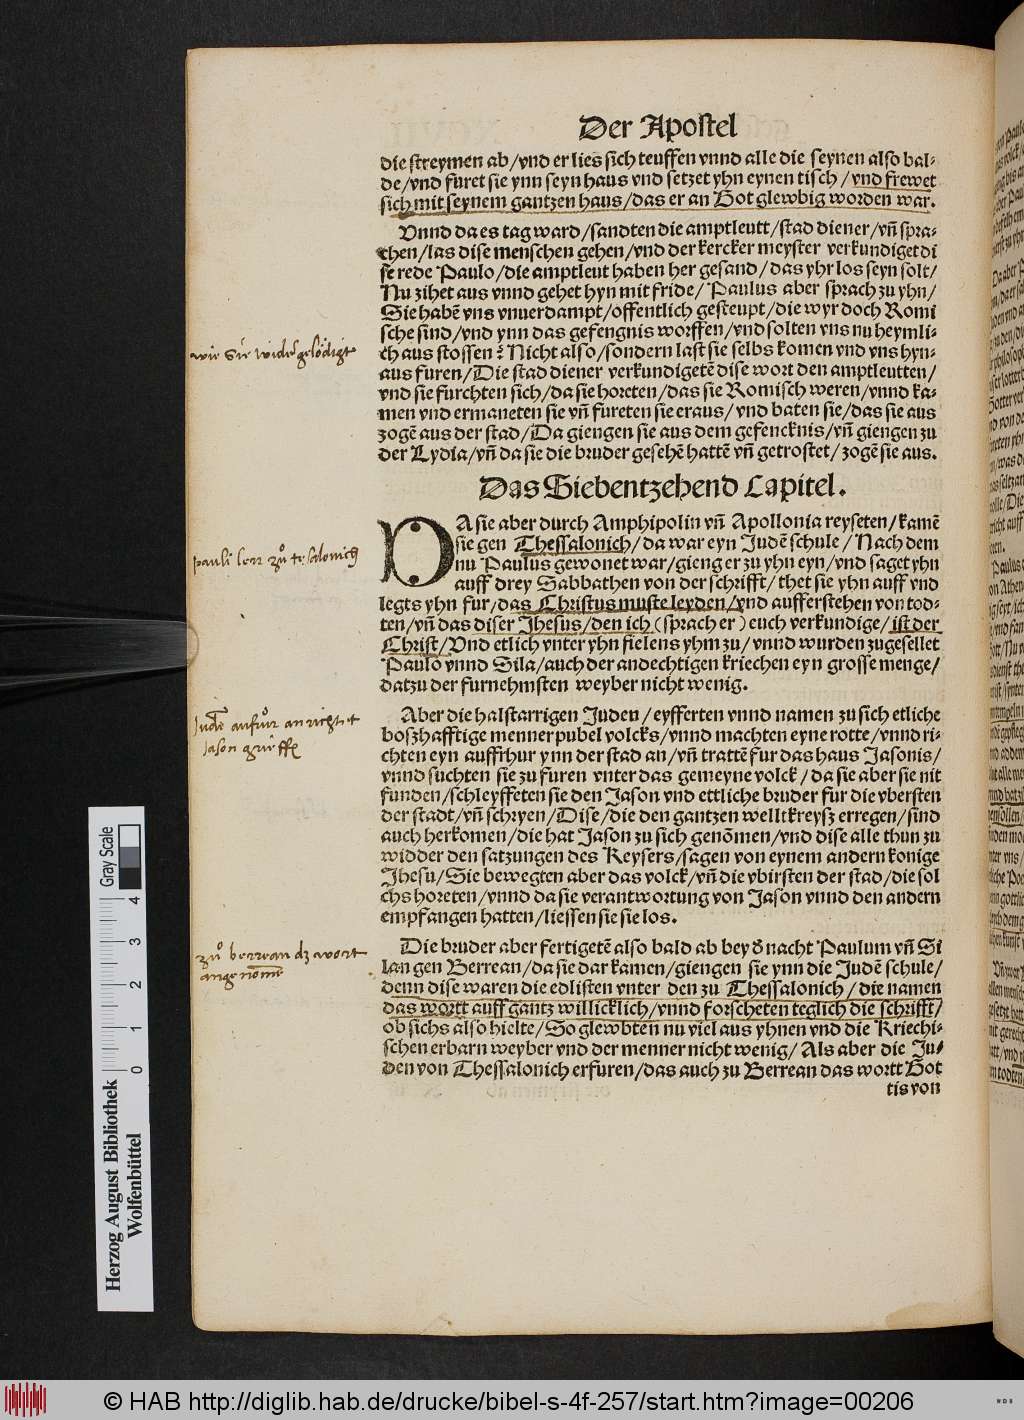 Der Apostel
die streymen ab/vnd er lies sich teuffen vnnd alle die seynen also bal-
de/vnd furet sie ynn seyn haus vnd setzet yhn eynen tisch/vnd frewet
sich mit seynem gantzen haus/das er an Got glewbig worden war.
Vnnd da es tag ward/sandten die amptleutt/stad diener/vñ spra-
chen/las dise menschen gehen/vnd der kercker meyster verkundiget di
se rede Paulo/die amptleut haben her gesand/das yhr los seyn solt/
Nu zihet aus vnnd gehet hyn mit fride/Paulus aber sprach zu yhn/
Sie habẽ vns vnuerdampt/offentlich gesteupt/die wyr doch Romi
sche sind/vnd ynn das gefengnis worffen/vnd solten vns nu heymli-
ch aus stossen? Nicht also/sondern last sie selbs komen vnd vns hyn-
aus furen/Die stad diener verkundigetẽ dise wort den amptleutten/
vnd sie furchten sich/da sie horeten/das sie Romisch weren/vnnd ka-
men vnd ermaneten sie vñ fureten sie eraus/vnd baten sie/das sie aus
zogẽ aus der stad/Da giengen sie aus dem gefencknis/vñ giengen zu
der Lydia/vñ da sie die bruder gesehẽ hattẽ vñ getrostet/zogẽ sie aus.
wie Sie wider gelödigt
Das Siebentzehend Capitel.
DA sie aber durch Amphipolin vñ Apollonia reyseten/kamẽ
sie gen Thessalonich/da war eyn Judẽ schule/Nach dem
nu Paulus gewonet war/gieng er zu yhn eyn/vnd saget yhn
auff drey Sabbathen von der schrifft/thet sie yhn auff vnd
legts yhn fur/das Christus muste leyden/vnd aufferstehen von tod-
ten/vñ das diser Jhesus/den ich (sprach er) euch verkundige/ist der
Christ/Vnd etlich vnter yhn fielens yhm zu/vnnd wurden zugesellet
Paulo vnnd Sila/auch der andechtigen kriechen eyn grosse menge/
datzu der furnehmsten weyber nicht wenig.
pauli lerr zů tessalonich
Aber die halstarrigen Juden/eyfferten vnnd namen zu sich etliche
boszhafftige menner pubel volcks/vnnd machten eyne rotte/vnnd ri-
chten eyn auffrhur ynn der stad an/vñ trattẽ fur das haus Jasonis/
vnnd suchten sie zu furen vnter das gemeyne volck/da sie aber sie nit
funden/schleyffeten sie den Jason vnd ettliche bruder fur die vbersten
der stadt/vñ schryen/Dise/die den gantzen welltkreysz erregen/sind
auch herkomen/die hat Jason zu sich genõmen/vnd dise alle thun zu
widder den satzungen des Keysers/sagen von eynem andern konige
Jhesu/Sie bewegten aber das volck/vñ die vbirsten der stad/die sol
chs horeten/vnnd da sie verantwortung von Jason vnnd den andern
empfangen hatten/liessen sie sie los.
Judẽ aufrůr anrichtet
Jason grieffẽ
Die bruder aber fertigetẽ also bald ab bey d nacht Paulum vñ Si
lan gen Berrean/da sie dar kamen/giengen sie ynn die Judẽ schule/
denn dise waren die edlisten vnter den zu Thessalonich/die namen
das wortt auff gantz willicklich/vnnd forscheten teglich die schrifft/
ob sichs also hielte/So glewbten nu viel aus yhnen vnd die Kriechi-
schen erbarn weyber vnd der menner nicht wenig/Als aber die Ju-
den von Thessalonich erfuren/das auch zu Berrean das wortt Got
tis von
zů berrean dz wort
angenomẽ
Herzog August Bibliothek
Wolfenbüttel
0 1 2 3 4
Gray Scale
© HAB http://diglib.hab.de/drucke/bibel-s-4f-257/start.htm?image=00206